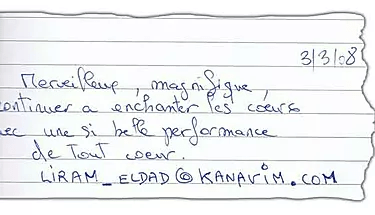 3/3/08
Merveilleux, magnifique,
continuer a enchanter les cœurs
avec une si belle performance
de Tout coeur.
LIRAM_ELDAD@KANAVIM.COM